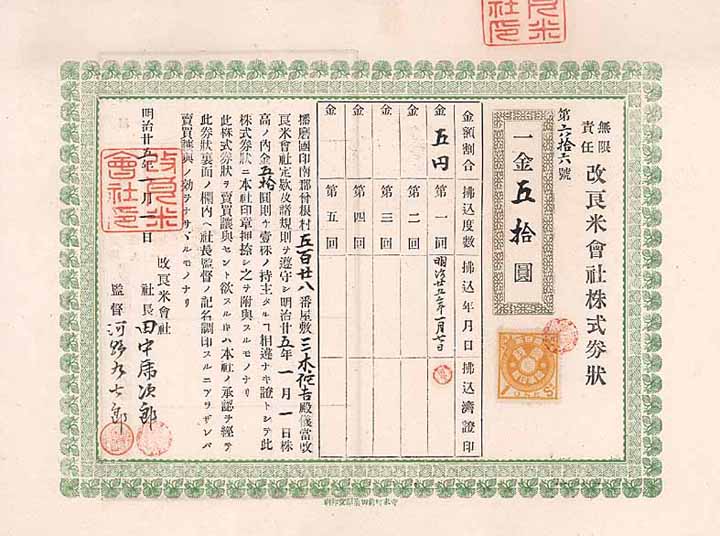 無限責任 改良米會社株式券狀
第六拾六號
一金五拾圓
金額割合 拂込度數 拂込年月日 拂込濟證印
金 五円 第一回 明治廿五年一月七日
金 第二回
金 第三回
金 第四回
金 第五回
播磨國印南郡曾根村五百廿八番屋敷三木從吉殿儀當改
良米會社定欵及諸規則ヲ遵守シ明治廿五年一月一日株
高ノ內金五拾圓則ケ壹株ノ持主タルヿ相違ナキ證トシテ此
株式券狀ニ本社印章押捺シ之ヲ附與スルモノナリ
此株式券狀ヲ賣買讓與セント欲スルトキハ本社ノ承認ヲ經テ
此券狀裏面ノ欄內ヘ社長監督ノ記名調印スルニアラザレバ
賣買讓與ノ効ヲナサヾルモノナリ
明治廿五年一月一日
改良米會社
社長 田中席次郎
監督 河野九七郎
改良米會社印